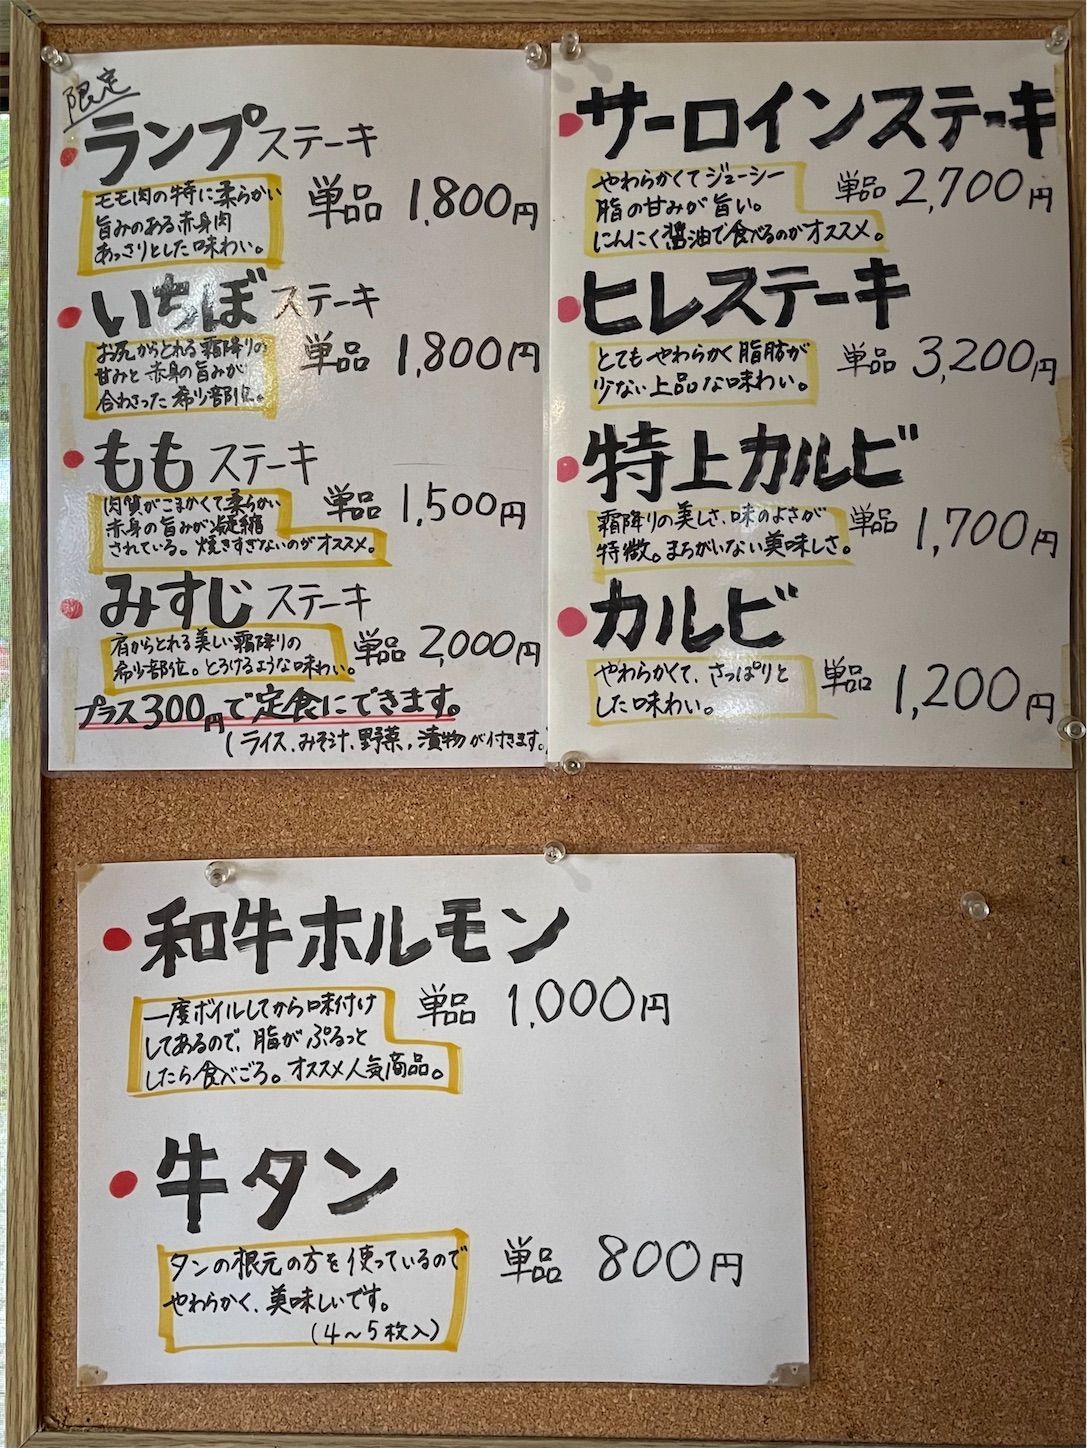 限定
ランプステーキ
モモ肉の特に柔らかい
旨みのある赤身肉
あっさりとした味わい。
単品 1,800円
いちぼステーキ
お尻からとれる霜降りの
甘みと赤身の旨みが
合わさった希少部位。
単品 1,800円
ももステーキ
肉質がこまかくて柔らかい
赤身の旨みが凝縮
されている。焼きすぎないのがオススメ。
単品 1,500円
みすじステーキ
肩からとれる美しい霜降りの
希少部位。とろけるような味わい。
単品 2,000円
プラス300円で定食にできます。
(ライス、みそ汁、野菜、漬物が付きます。)
サーロインステーキ
やわらかくてジューシー
脂の甘みが旨い。
にんにく醤油で食べるのがオススメ。
単品 2,700円
ヒレステーキ
とてもやわらかく脂肪が
少ない上品な味わい。
単品 3,200円
特上カルビ
霜降りの美しさ、味のよさが
特徴。まちがいない美味しさ。
単品 1,700円
カルビ
やわらかくて、さっぱりと
した味わい。
単品 1,200円
和牛ホルモン
一度ボイルしてから味付け
してあるので、脂がぷるっと
したら食べごろ。オススメ人気商品。
単品 1,000円
牛タン
タンの根元の方を使っているので
やわらかく、美味しいです。
(4〜5枚入)
単品 800円